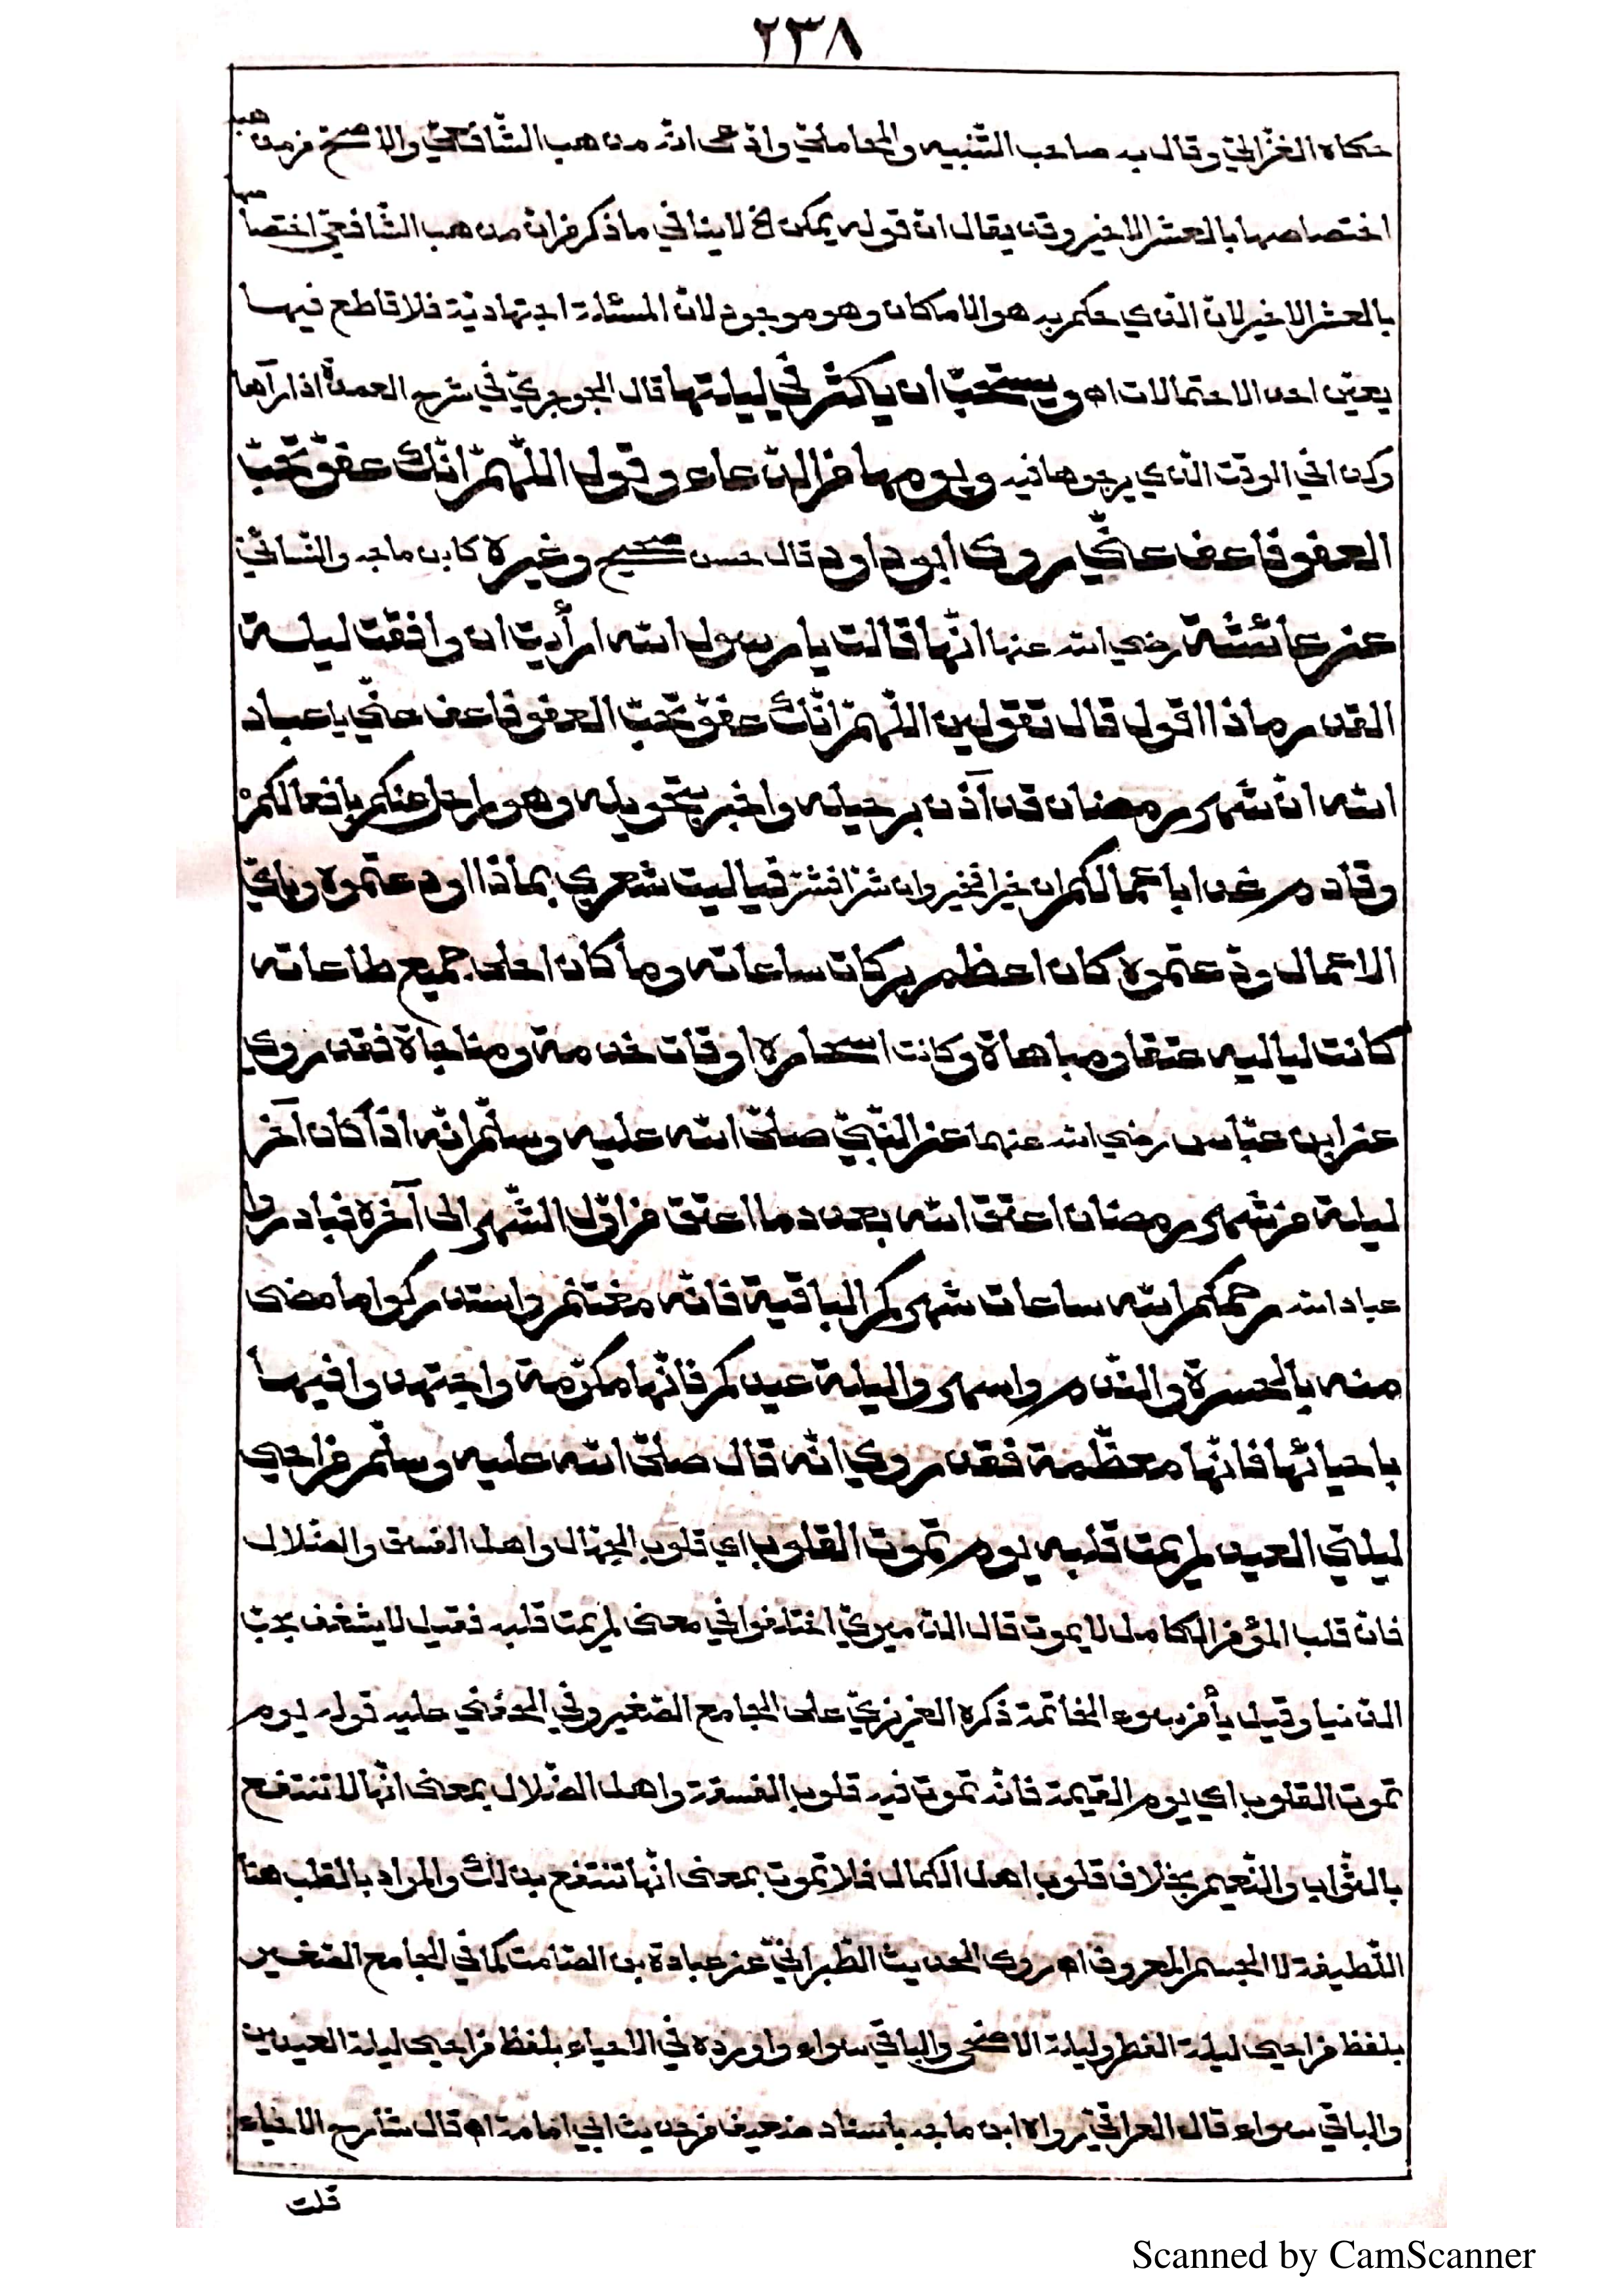 ٢٣٨
حكاه الغزّاليّ وقال به صاحب التّنبيه والمحامليّ وادّعى انّه مذهب الشّافعيّ والاصحّ من مذهبه
اختصاصها بالعشر الاخير وقد يقال انّ قوله يمكن الخ لا ينافي ما ذكر من انّ مذهب الشّافعيّ اختصاصها
بالعشر الاخير لانّ الّذي حكم به هو الامكان وهو موجود لانّ المسئلة اجتهاديّة فلا قاطع فيها
يعيّن احد الاحتمالات اه ويستحبّ ان يكثر في ليلتها قال الجوجريّ في شرح العمدة اذا رآها
وكذا في الوقت الّذي يرجوها فيه ويومها من الدّعاء وقول اللّهمّ انّك عفوّ تحبّ
العفو فاعف عنّي روى ابو داود قال حسن صحيح وغيره كابن ماجه والنّسائيّ
عن عائشة رضي الله عنها انّها قالت يا رسول الله ارأيت ان وافقت ليلة
القدر ماذا اقول قال تقولين اللّهمّ انّك عفوّ تحبّ العفو فاعف عنّي يا عباد
الله انّ شهر رمضان قد آذن برحيله واخبر بتحويله وهو راحل عنكم بافعالكمْ
وقادم غدا باعمالكم ان خيرا فخير وان شرّا فشرّ فيا ليت شعري بماذا اودعتموه وبايّ
الاعمال ودّعتموه كان اعظم بركات ساعاته وما كان احلى جميع طاعاته
كانت لياليه عتقا ومباهاة وكانت اسحاره اوقات خدمة ومناجاة فقد روي
عن ابن عبّاس رضي الله عنهما عن النّبيّ صلّى الله عليه وسلّم انّه اذا كان آخر
ليلة من شهر رمضان اعتق الله بعدد ما اعتق من اوّل الشّهر الى آخره فبادروا
عباد الله رحمكم الله ساعات شهركم الباقية فانّه مغتنم واستدركوا ما مضى
منه بالحسرة والنّدم واسهروا ليلة عيدكم فانّها مكرّمة واجتهدوا فيها
باحيائها فانّها معظّمة فقد روي انّه قال صلّى الله عليه وسلّم من احيى
ليلتي العيد لم يمت قلبه يوم تموت القلوب اي قلوب الجهّال واهل الفسق والضّلال
فانّ قلب المؤمن الكامل لا يموت قال الدّميريّ اختلفوا في معنى لم يمت قلبه فقيل لا يشغف بحبّ
الدّنيا وقيل يأمن سوء الخاتمة ذكره العزيزيّ على الجامع الصّغير وفي الحفني عليه قوله يوم
تموت القلوب اي يوم القيمة فانّه تموت فيه قلوب الفسقة واهل الضّلال بمعنى انّها لا تنتفع
بالثّواب والنّعيم بخلاف قلوب اهل الكمال فلا تموت بمعنى انّها تنتفع بذلك والمراد بالقلب هنا
اللّطيفة لا الجسم المعروف اه روى الحديث الطّبرانيّ عن عبادة بن الصّامت كما في الجامع الصّغير
بلفظ من احيى ليلة الفطر وليلة الاضحى والباقي سواء واورده في الاحياء بلفظ من احيى ليلة العيدين
والباقي سواء قال العراقيّ رواه ابن ماجه باسناد ضعيف من حديث ابي امامة اه قال شارح الاحياء
قلت
Scanned by CamScanner